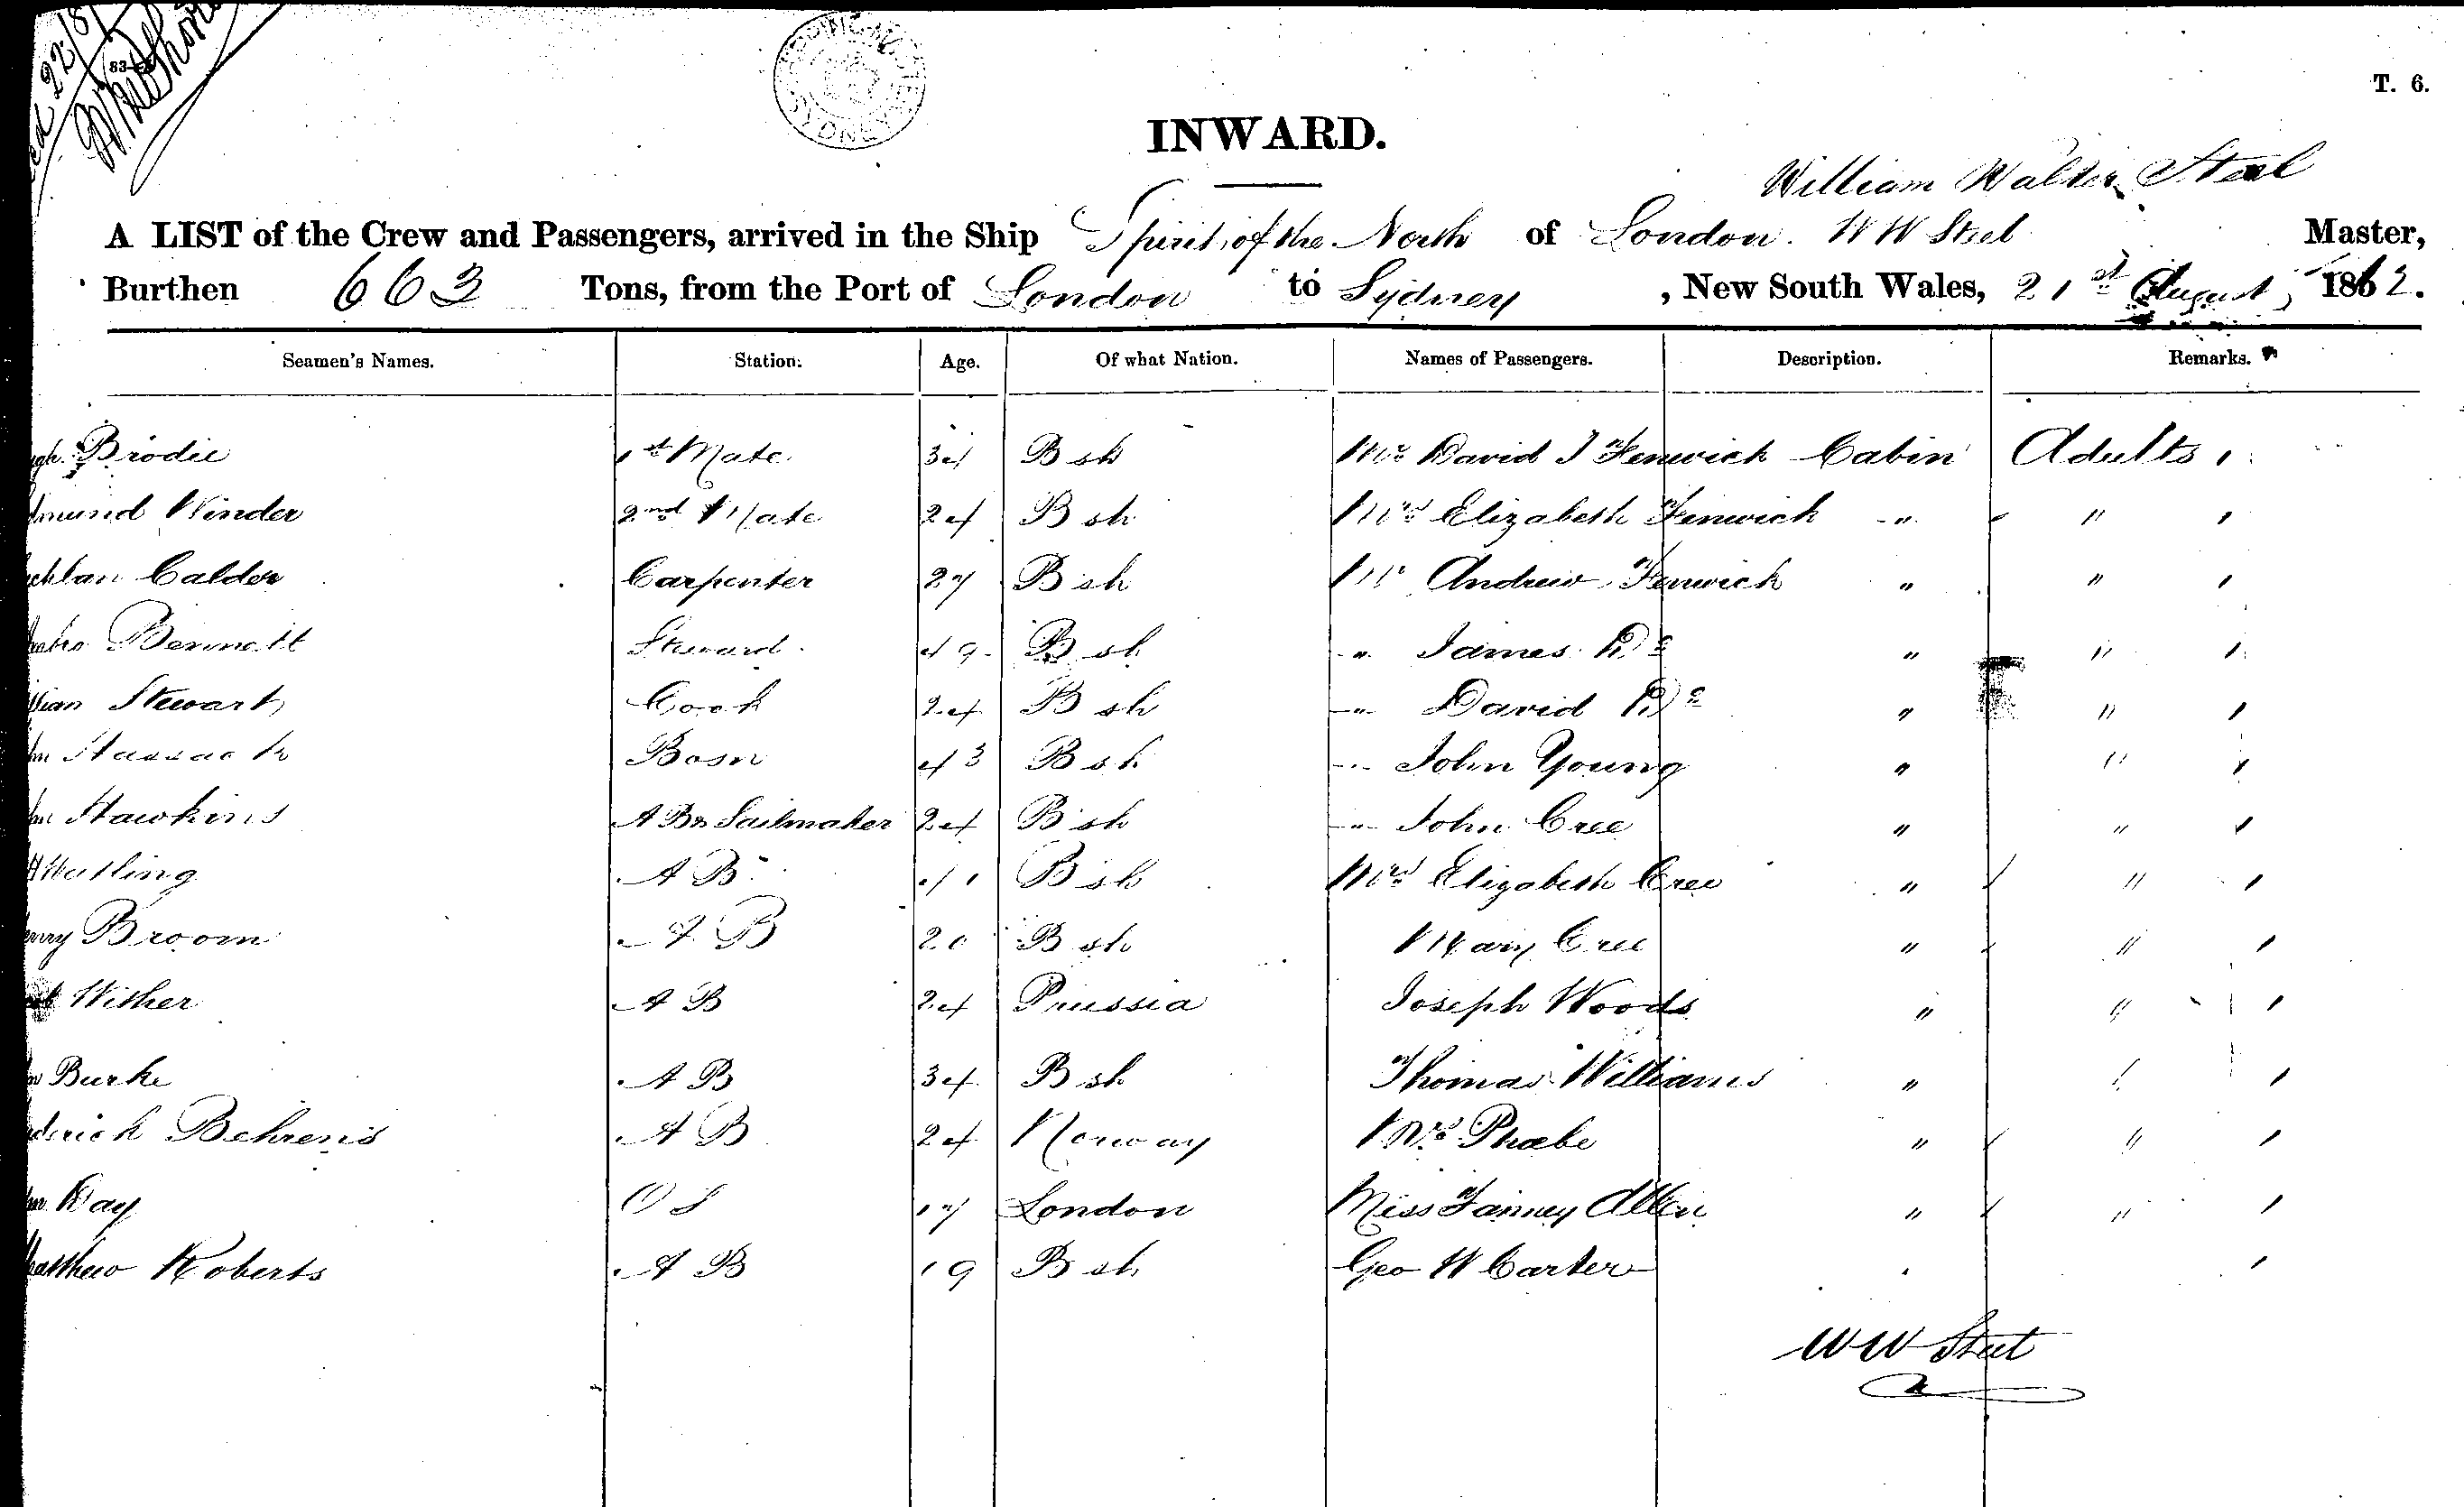 83
SYDNEY
T. 6.
INWARD.
William Walter Steel
A LIST of the Crew and Passengers, arrived in the Ship Spirit of the North of London. W W Steel Master,
Burthen 663 Tons, from the Port of London to Sydney, New South Wales, 21st August, 1862.
Seamen's Names. Station. Age. Of what Nation. Names of Passengers. Description. Remarks.
Brodie 1st Mate 34 Bsh Mr David J Fenwick Cabin Adults
Winder 2nd Mate 24 Bsh Mrs Elizabeth Fenwick " "
Calder Carpenter 27 Bsh Mr Andrew Fenwick " "
Bennett Steward 49 Bsh " James Do " "
Stewart Cook 24 Bsh " David Do " "
Bosn 43 Bsh " John Young " "
Hawkins AB & Sailmaker 24 Bsh " John Cree " "
Watling AB 41 Bsh Mrs Elizabeth Cree " "
Broom AB 20 Bsh Mary Cree " "
Wither AB 24 Prussia Joseph Woods " "
Burke AB 34 Bsh Thomas Williams " "
Behrens AB 24 Norway Mrs Phœbe " "
Day OS 17 London Miss Fanney Allen " "
Matthew Roberts AB 19 Bsh Geo W Carter
WW Steel